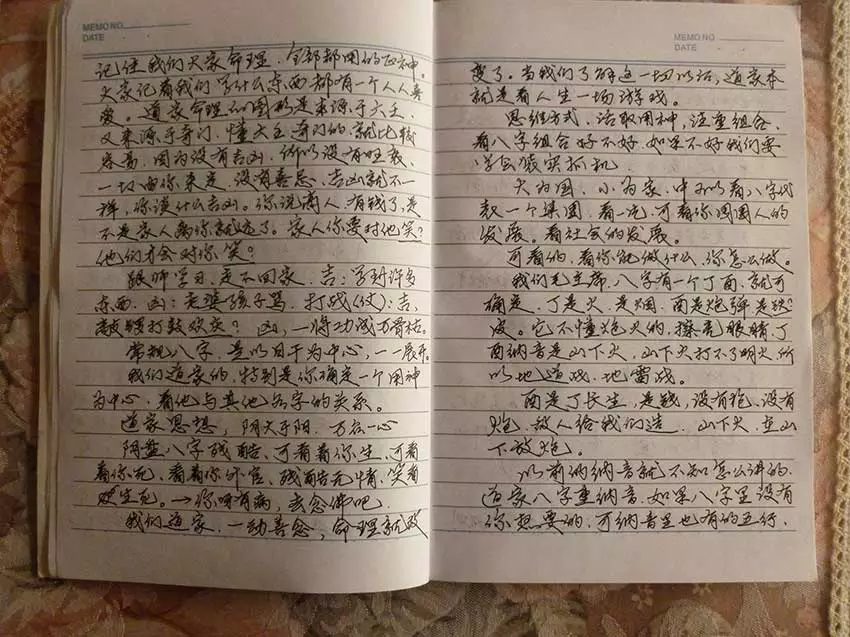 MEMO NO
DATE
记住我们大家命理，全部都用的正神。
大家记着我们学什么东西都有一个人人具
爱。道家命理和图形是来源于六壬，
又来源于奇门，懂六壬奇门的，就比较
容易，因为没有吉凶，所以没有旺衰，
一切由你来定，没有善恶，吉凶就不一
样，你谈什么吉凶。你说商人，有钱了，是
不是家人离你就远了。家人你要对他笑？
他们才会对你笑？
跟师学习，是不回家，吉：学到许多
东西，凶：老婆孩子骂，打战(仗)：吉，
敲锣打鼓欢庆？凶，一将功成万骨枯。
常规八字，是以日干为中心，一一展开。
我们道家的，特别是你确定一个用神
为中心，看他与其他各字的关系。
道家思想，阴大于阳，万农一心
阴盘八字残酷，可看着你生，可看
着你死，看着你升官，残酷无情，笑看
众生死。→你哪有病，去念佛吧
我们道家，一动善念，命理就改
MEMO NO
DATE
变了。当我们了解这一切以后，道家本
就是看人生一场游戏。
思维方式，活取用神，注重组合，
看八字组合好不好，如果不好我们要
学会装实抓机
大为国，小为家，中可以看，八字代
表一个集团，看一光，可看你周围人的
发展。看社会的发展。
可看的，看你能做什么，你怎么做。
我们毛主席，八字有一个丁酉，就可
确定，丁是火，是烟，酉是炮弹是铁？
皮。它不懂炮火的，擦亮眼睛，丁
酉纳音是山下火，山下火打不了明火，所
以地道战，地雷战。
酉是丁长生，是钱，没有枪，没有
炮，敌人给我们造，山下火，在山
下放炮。
以前的纳音就不知怎么讲的，
道家八字重纳音，如果八字里没有
你想要的，可纳音里也有的五行，